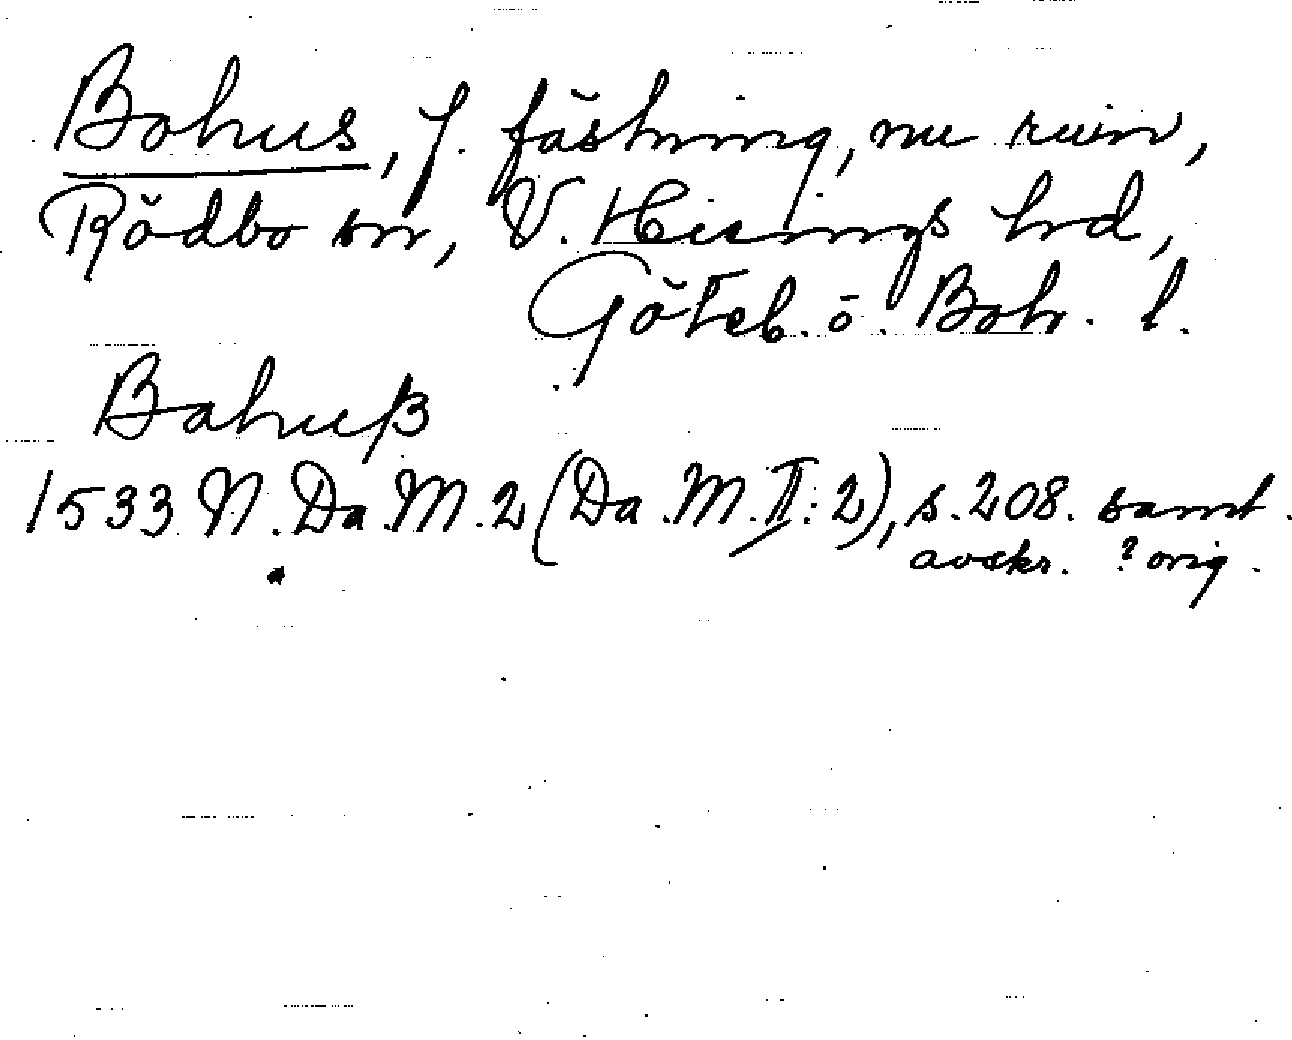 Bohus, f. fästning, nu ruin,
Rödbo sn, V. Hisings hrd,
Göteb. o. Boh. l.
Bahuß
1533 N. Da. M. 2 (Da. M. II: 2), s. 208. samt.
avskr. ? orig.